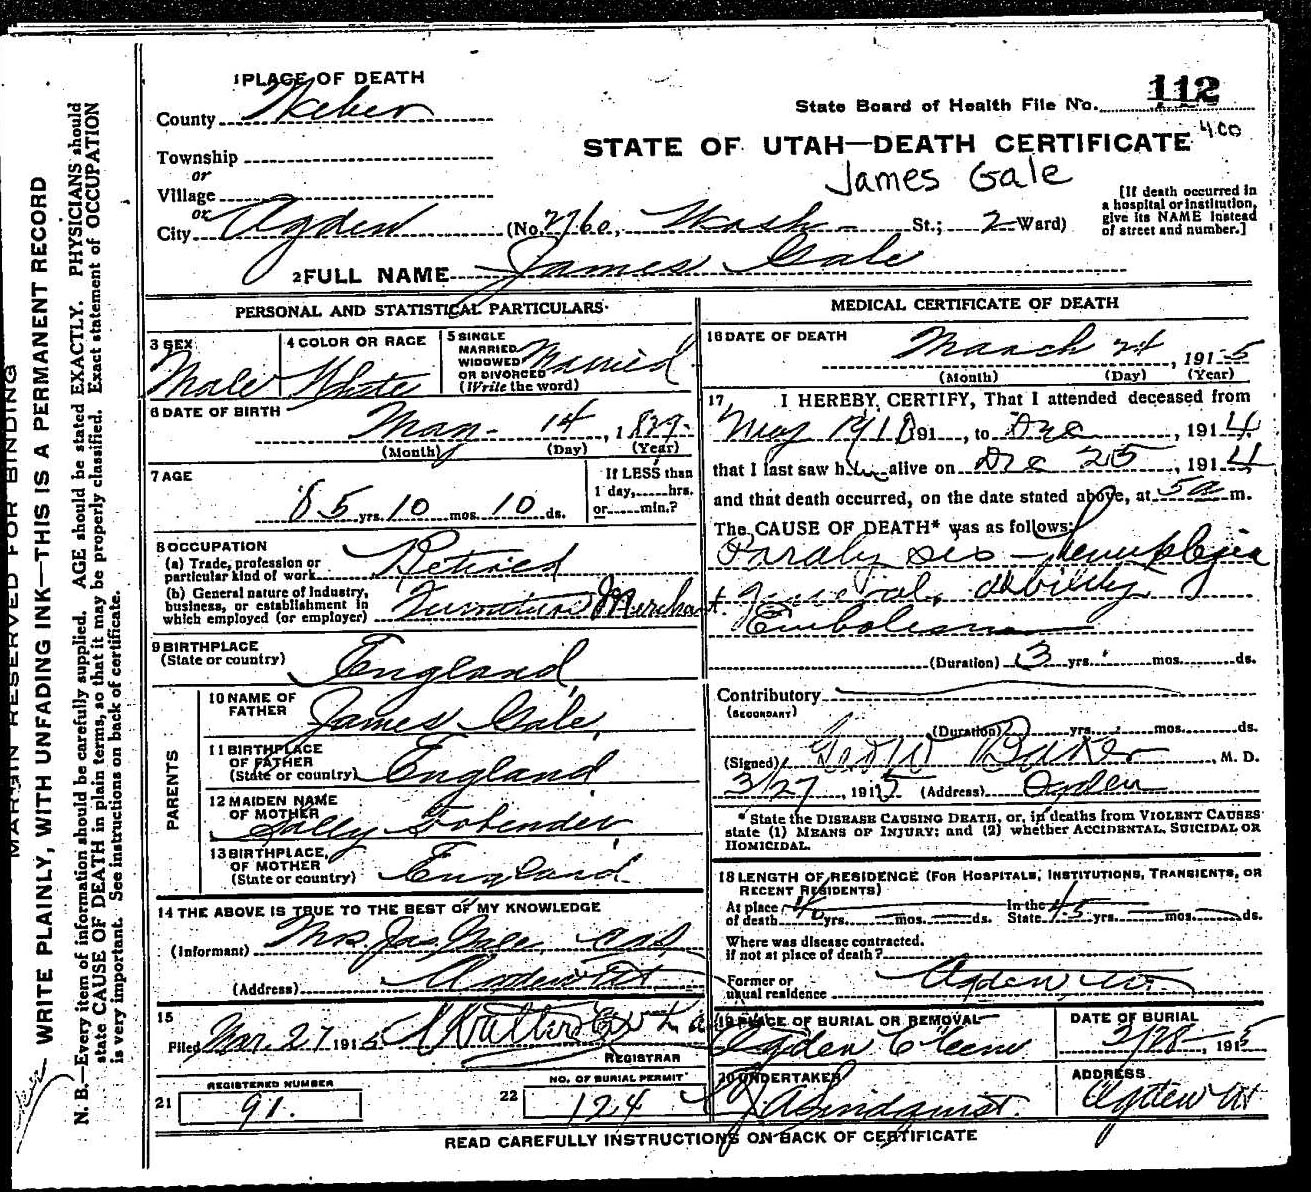 1 PLACE OF DEATH
County Weber
State Board of Health File No. 112
Township
STATE OF UTAH—DEATH CERTIFICATE 400
or
James Gale
Village
or
City Ogden (No. 2760, Wash St.; 2 Ward)
[If death occurred in
a hospital or institution,
give its NAME instead
of street and number.]
2 FULL NAME James Gale
PERSONAL AND STATISTICAL PARTICULARS
3 SEX Male
4 COLOR OR RACE White
5 SINGLE
MARRIED
WIDOWED
OR DIVORCED
(Write the word) Married
6 DATE OF BIRTH
May 14, 1829
(Month) (Day) (Year)
7 AGE
85 yrs. 10 mos. 10 ds.
If LESS than
1 day, hrs.
or min.?
8 OCCUPATION
(a) Trade, profession or
particular kind of work Retired
(b) General nature of Industry,
business, or establishment in
which employed (or employer) Furniture Merchant
9 BIRTHPLACE
(State or country) England
PARENTS
10 NAME OF
FATHER James Gale
11 BIRTHPLACE
OF FATHER
(State or country) England
12 MAIDEN NAME
OF MOTHER Sally
13 BIRTHPLACE,
OF MOTHER
(State or country) England
14 THE ABOVE IS TRUE TO THE BEST OF MY KNOWLEDGE
(Informant) Mrs. Jas. Gale
(Address) Ogden Ut
15
Filed Mar. 27 1915
REGISTRAR
REGISTERED NUMBER
21 91.
NO. OF BURIAL PERMIT
22 124
MEDICAL CERTIFICATE OF DEATH
16 DATE OF DEATH
March 24, 1915
(Month) (Day) (Year)
17 I HEREBY CERTIFY, That I attended deceased from
May 191 , to Dec , 1914
that I last saw him alive on Dec 25, 1914
and that death occurred, on the date stated above, at 5a m.
The CAUSE OF DEATH* was as follows:
Paralysis - Hemiplegia
General debility
Embolism
(Duration) 3 yrs. mos. ds.
Contributory
(SECONDARY)
(Duration) yrs. mos. ds.
(Signed) Geo W Baker, M. D.
3/27, 1915 (Address) Ogden
* State the DISEASE CAUSING DEATH, or, in deaths from VIOLENT CAUSES
state (1) MEANS OF INJURY; and (2) whether ACCIDENTAL, SUICIDAL OR
HOMICIDAL.
18 LENGTH OF RESIDENCE (FOR HOSPITALS, INSTITUTIONS, TRANSIENTS, OR
RECENT RESIDENTS)
At place In the
of death 40 yrs. mos. ds. State 45 yrs. mos. ds.
Where was disease contracted.
if not at place of death?
Former or
usual residence Ogden Ut.
19 PLACE OF BURIAL OR REMOVAL
Ogden Cem
DATE OF BURIAL
3/28, 1915
20 UNDERTAKER
Lindquist
ADDRESS
Ogden Ut
READ CAREFULLY INSTRUCTIONS ON BACK OF CERTIFICATE
MARGIN RESERVED FOR BINDING
WRITE PLAINLY, WITH UNFADING INK—THIS IS A PERMANENT RECORD
N. B.—Every item of information should be carefully supplied. AGE should be stated EXACTLY. PHYSICIANS should
state CAUSE OF DEATH in plain terms, so that it may be properly classified. Exact statement of OCCUPATION
is very important. See instructions on back of certificate.